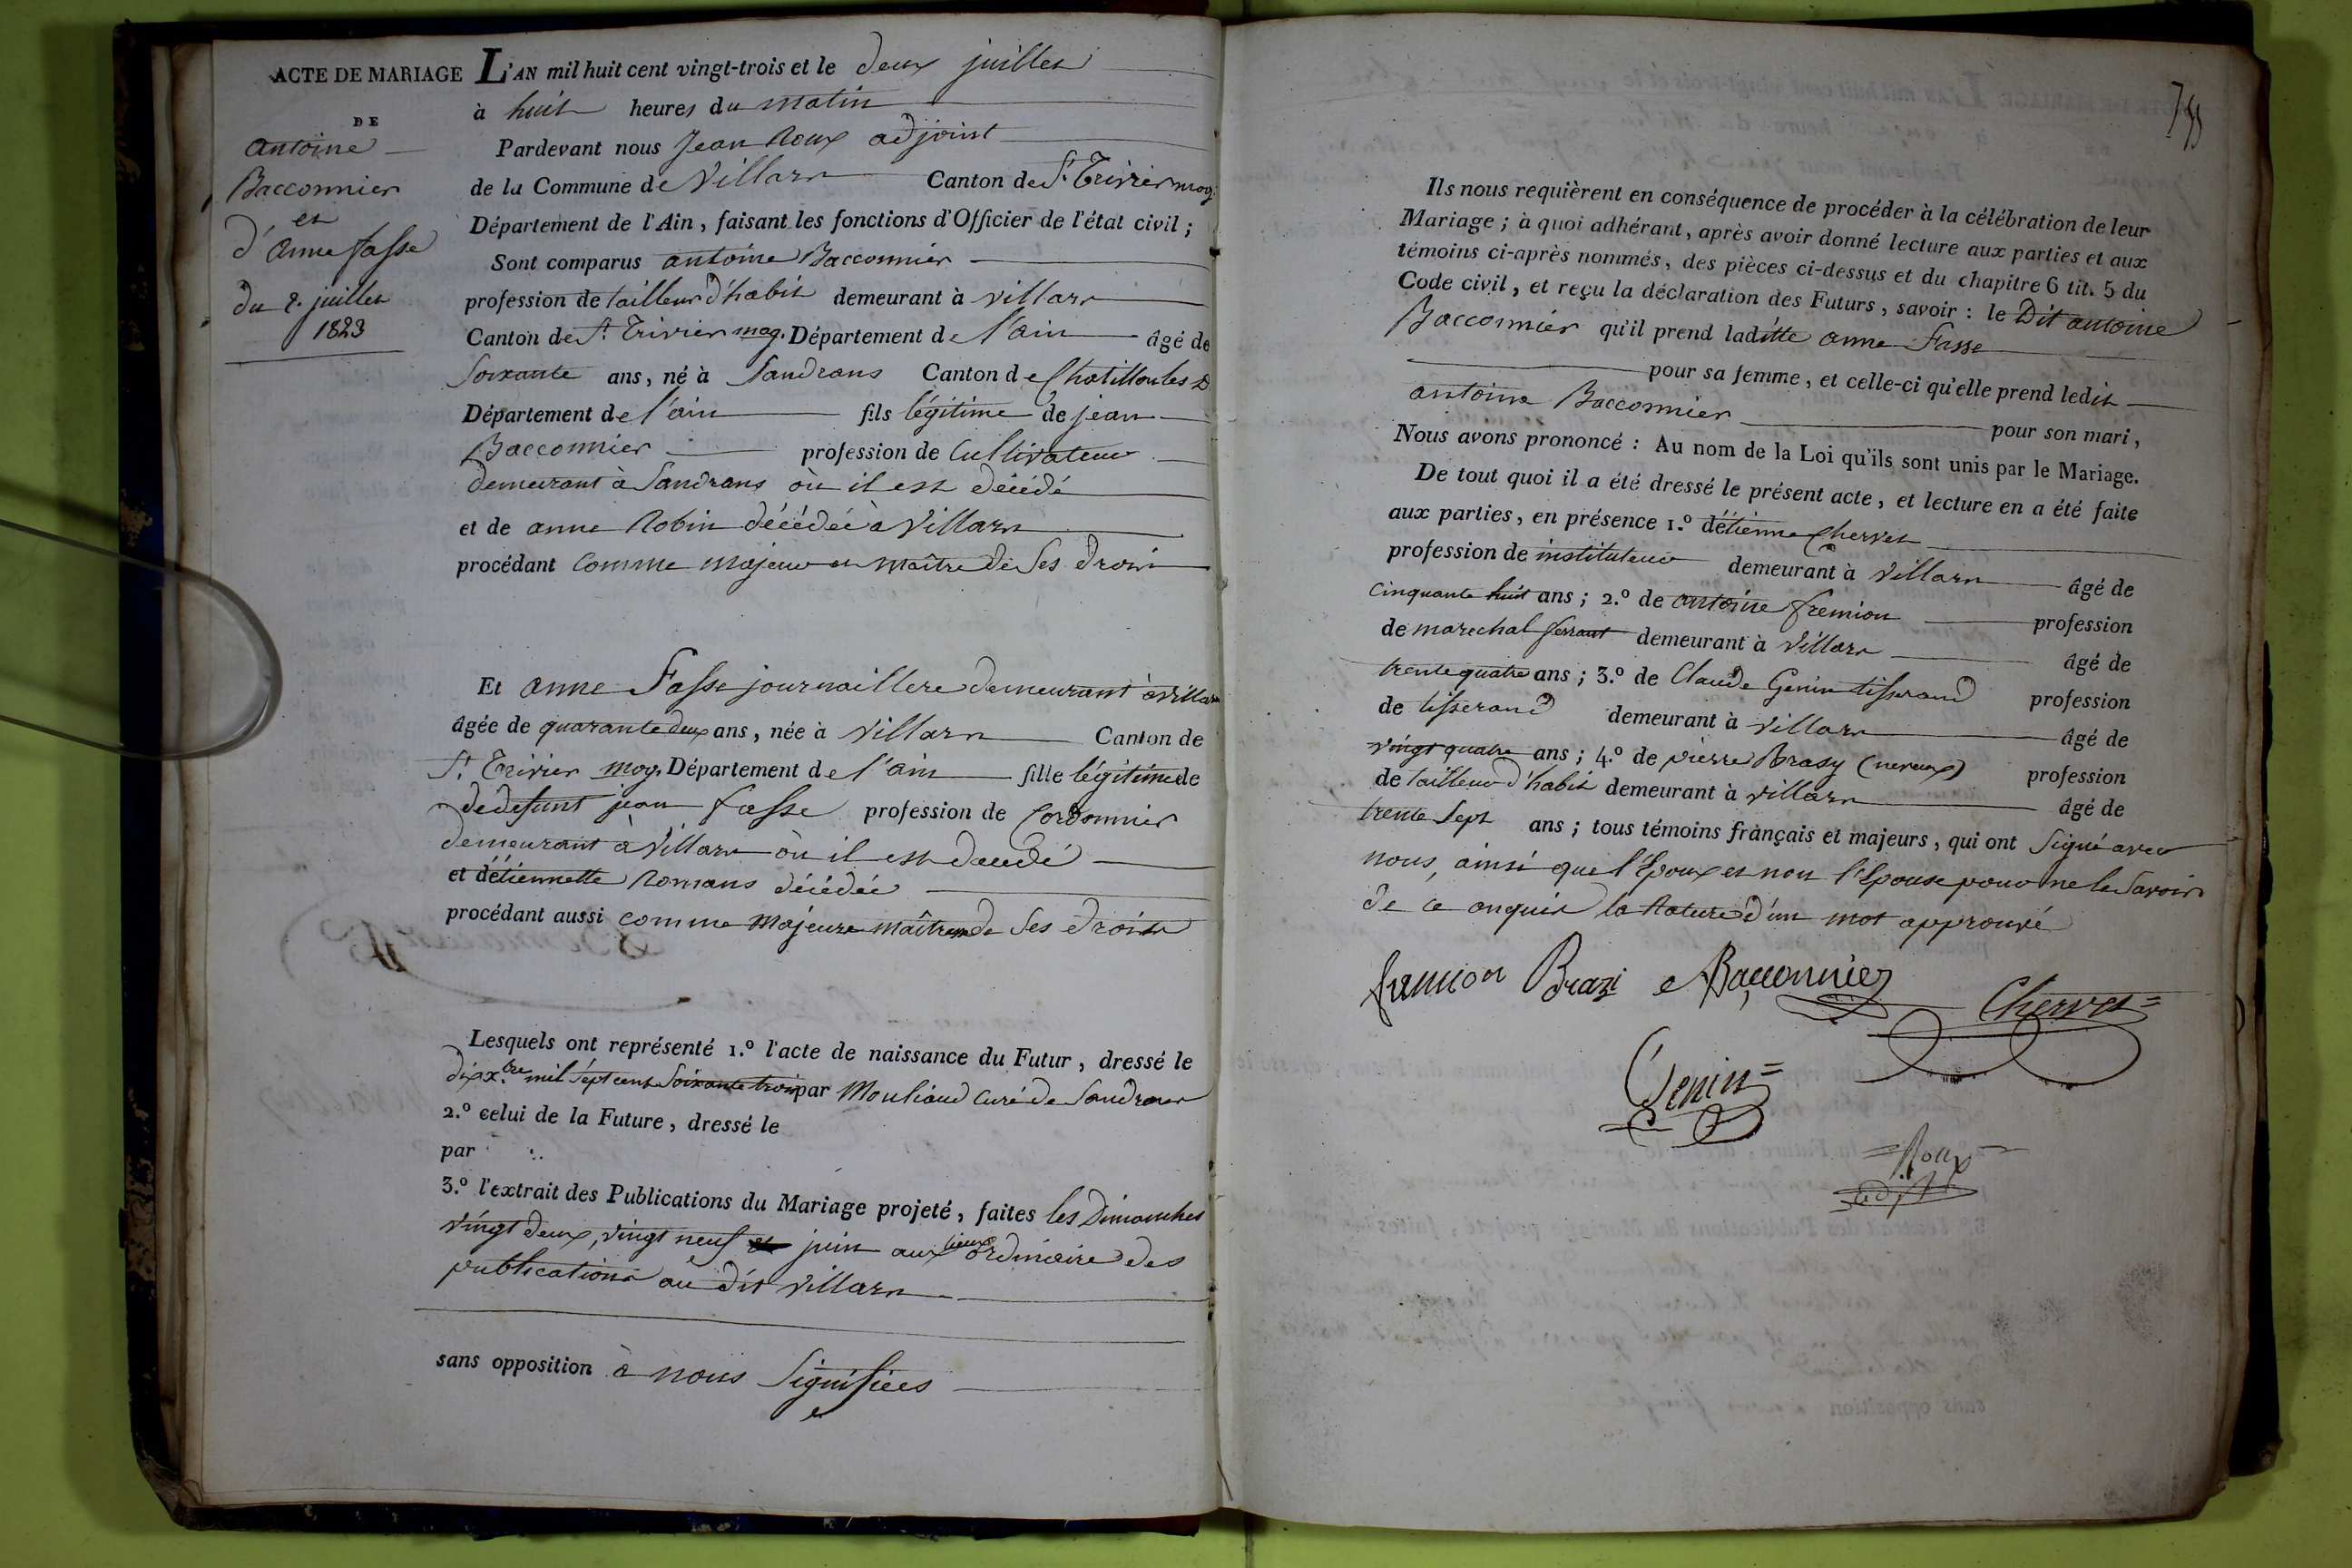 ACTE DE MARIAGE
DE
antoine
Bacconnier
et
d'anne fasse
du 2. juillet
1823
L'AN mil huit cent vingt-trois et le deux juillet
à huit heures du matin
Pardevant nous Jean Roux adjoint
de la Commune de Villars Canton de St. Trivier mog.
Département de l'Ain, faisant les fonctions d'Officier de l'état civil;
Sont comparus antoine Bacconnier
profession de tailleur d'habit demeurant à villars
Canton de St. Trivier mog. Département de l'ain âgé de
soixante ans, né à Sandrans Canton de Chatillon les D
Département de l'ain fils légitime de jean
Bacconnier profession de Cultivateur
demeurant à Sandrans où il est décédé
et de anne Robin décédée à Villars
procédant comme majeur et maître de ses droits
Et anne Fasse journaillere demeurant à villars
âgée de quarante deux ans, née à Villars Canton de
St. Trivier mog. Département de l'ain fille légitime de
de defunt jean fasse profession de Cordonnier
demeurant à Villars où il est decedé
et d'étiennette Romans décédée
procédant aussi comme majeure maîtresse de ses droits
Lesquels ont représenté 1.º l'acte de naissance du Futur, dressé le
dix xbre mil sept cent soixante trois par Mouliaud curé de Sandrans
2.º celui de la Future, dressé le
par
3.º l'extrait des Publications du Mariage projeté, faites les Dimanches
vingt deux, vingt neuf juin aux lieux ordinaire des
publications au dit villars
sans opposition à nous signifiées
Ils nous requièrent en conséquence de procéder à la célébration de leur
Mariage; à quoi adhérant, après avoir donné lecture aux parties et aux
témoins ci-après nommés, des pièces ci-dessus et du chapitre 6 tit. 5 du
Code civil, et reçu la déclaration des Futurs, savoir: le Dit antoine
Bacconnier qu'il prend laditte anne Fasse
pour sa femme, et celle-ci qu'elle prend ledit
antoine Bacconnier pour son mari,
Nous avons prononcé: Au nom de la Loi qu'ils sont unis par le Mariage.
De tout quoi il a été dressé le présent acte, et lecture en a été faite
aux parties, en présence 1.º d'étienne Chervet
profession de instituteur demeurant à Villars âgé de
cinquante huit ans; 2.º de antoine fremion profession
de marechal ferrant demeurant à Villars âgé de
trente quatre ans; 3.º de Claude Genin tisserand profession
de tisserand demeurant à villars âgé de
vingt quatre ans; 4.º de pierre Brazy (neveux) profession
de tailleur d'habit demeurant à villars âgé de
trente sept ans; tous témoins français et majeurs, qui ont signé avec
nous, ainsi que l'Epoux et non l'Epouse pour ne le savoir
de ce enquis la rature d'un mot approuvé
fremion Brazi Bacconnier Chervet
Genin
Roux
adjt